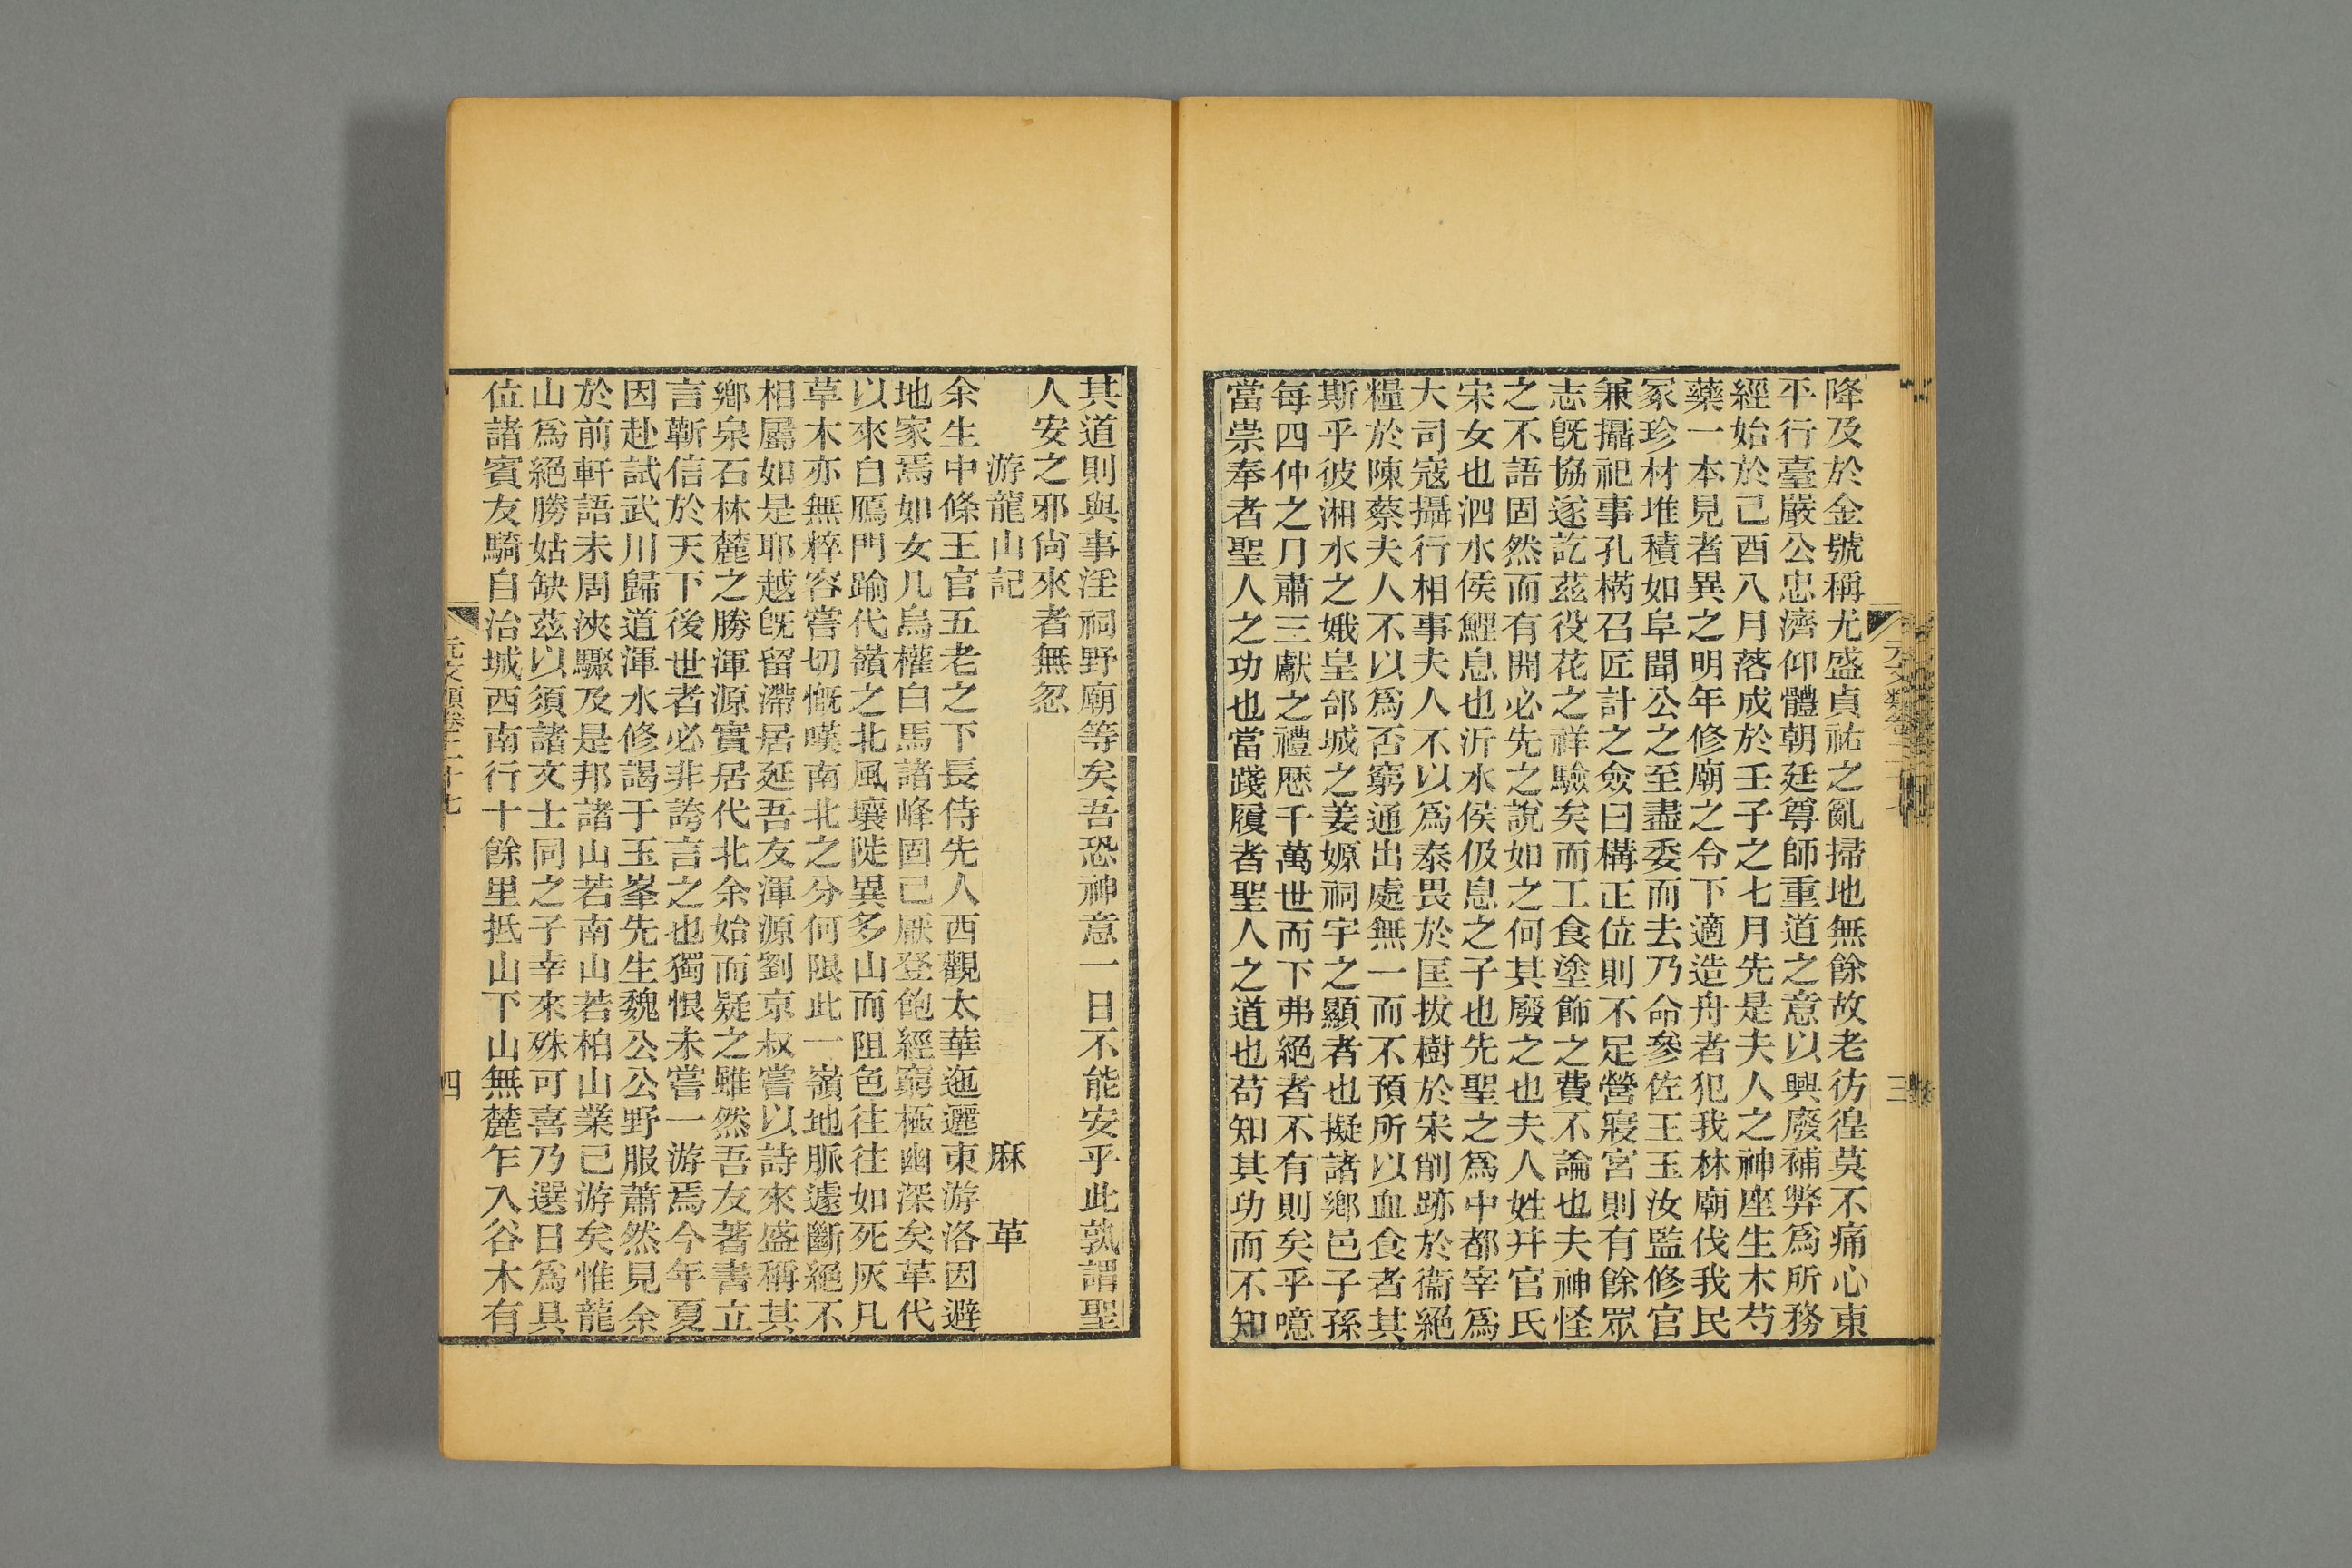 降及於金號稱尤盛貞祐之亂掃地無餘故老彷徨莫不痛心東
平行臺嚴公忠濟仰體朝廷尊師重道之意以興廢補弊爲所務
經始於己酉八月落成於壬子之七月先是夫人之神座生木芍
藥一本見者異之明年修廟之令下適造舟者犯我林廟伐我民
冢珍材堆積如阜聞公之至盡委而去乃命參佐王玉汝監修官
兼攝祀事孔㭎召匠計之僉曰構正位則不足營寢宮則有餘眾
志旣協遂訖茲役花之祥驗矣而工食塗飾之費不論也夫神怪
之不語固然而有開必先之說如之何其廢之也夫人姓幷官氏
宋女也泗水侯鯉息也沂水侯伋息之子也先聖之爲中都宰爲
大司寇攝行相事夫人不以爲泰畏於匡拔樹於宋削跡於衞絕
糧於陳蔡夫人不以爲否窮通出處無一而不預所以血食者其
斯乎彼湘水之娥皇邰城之姜嫄祠宇之顯者也擬諸鄉邑子孫
每四仲之月肅三獻之禮歷千萬世而下弗絕者不有則矣乎噫
當崇奉者聖人之功也當踐履者聖人之道也苟知其功而不知
元文類卷二十七
三
其道則與事淫祠野廟等矣吾恐神意一日不能安乎此孰謂聖
人安之邪尙來者無忽
游龍山記　麻革
余生中條王官五老之下長侍先人西觀太華迤邐東游洛因避
地家焉如女几烏權白馬諸峰固已厭登飽經窮極幽深矣革代
以來自鴈門踰代嶺之北風壤陡異多山而阻色往往如死灰凡
草木亦無粹容嘗切慨嘆南北之分何限此一嶺地脈遽斷絕不
相屬如是耶越旣留滯居延吾友渾源劉京叔嘗以詩來盛稱其
鄉泉石林麓之勝渾源實居代北余始而疑之雖然吾友著書立
言蘄信於天下後世者必非誇言之也獨恨未嘗一游焉今年夏
因赴試武川歸道渾水修謁于玉峯先生魏公公野服蕭然見余
於前軒語未周浹驟及是邦諸山若南山若柏山業已游矣惟龍
山爲絕勝姑缺茲以須諸文士同之子幸來殊可喜乃選日爲具
位諸賓友騎自治城西南行十餘里抵山下山無麓乍入谷木有
元文類卷二十七
四